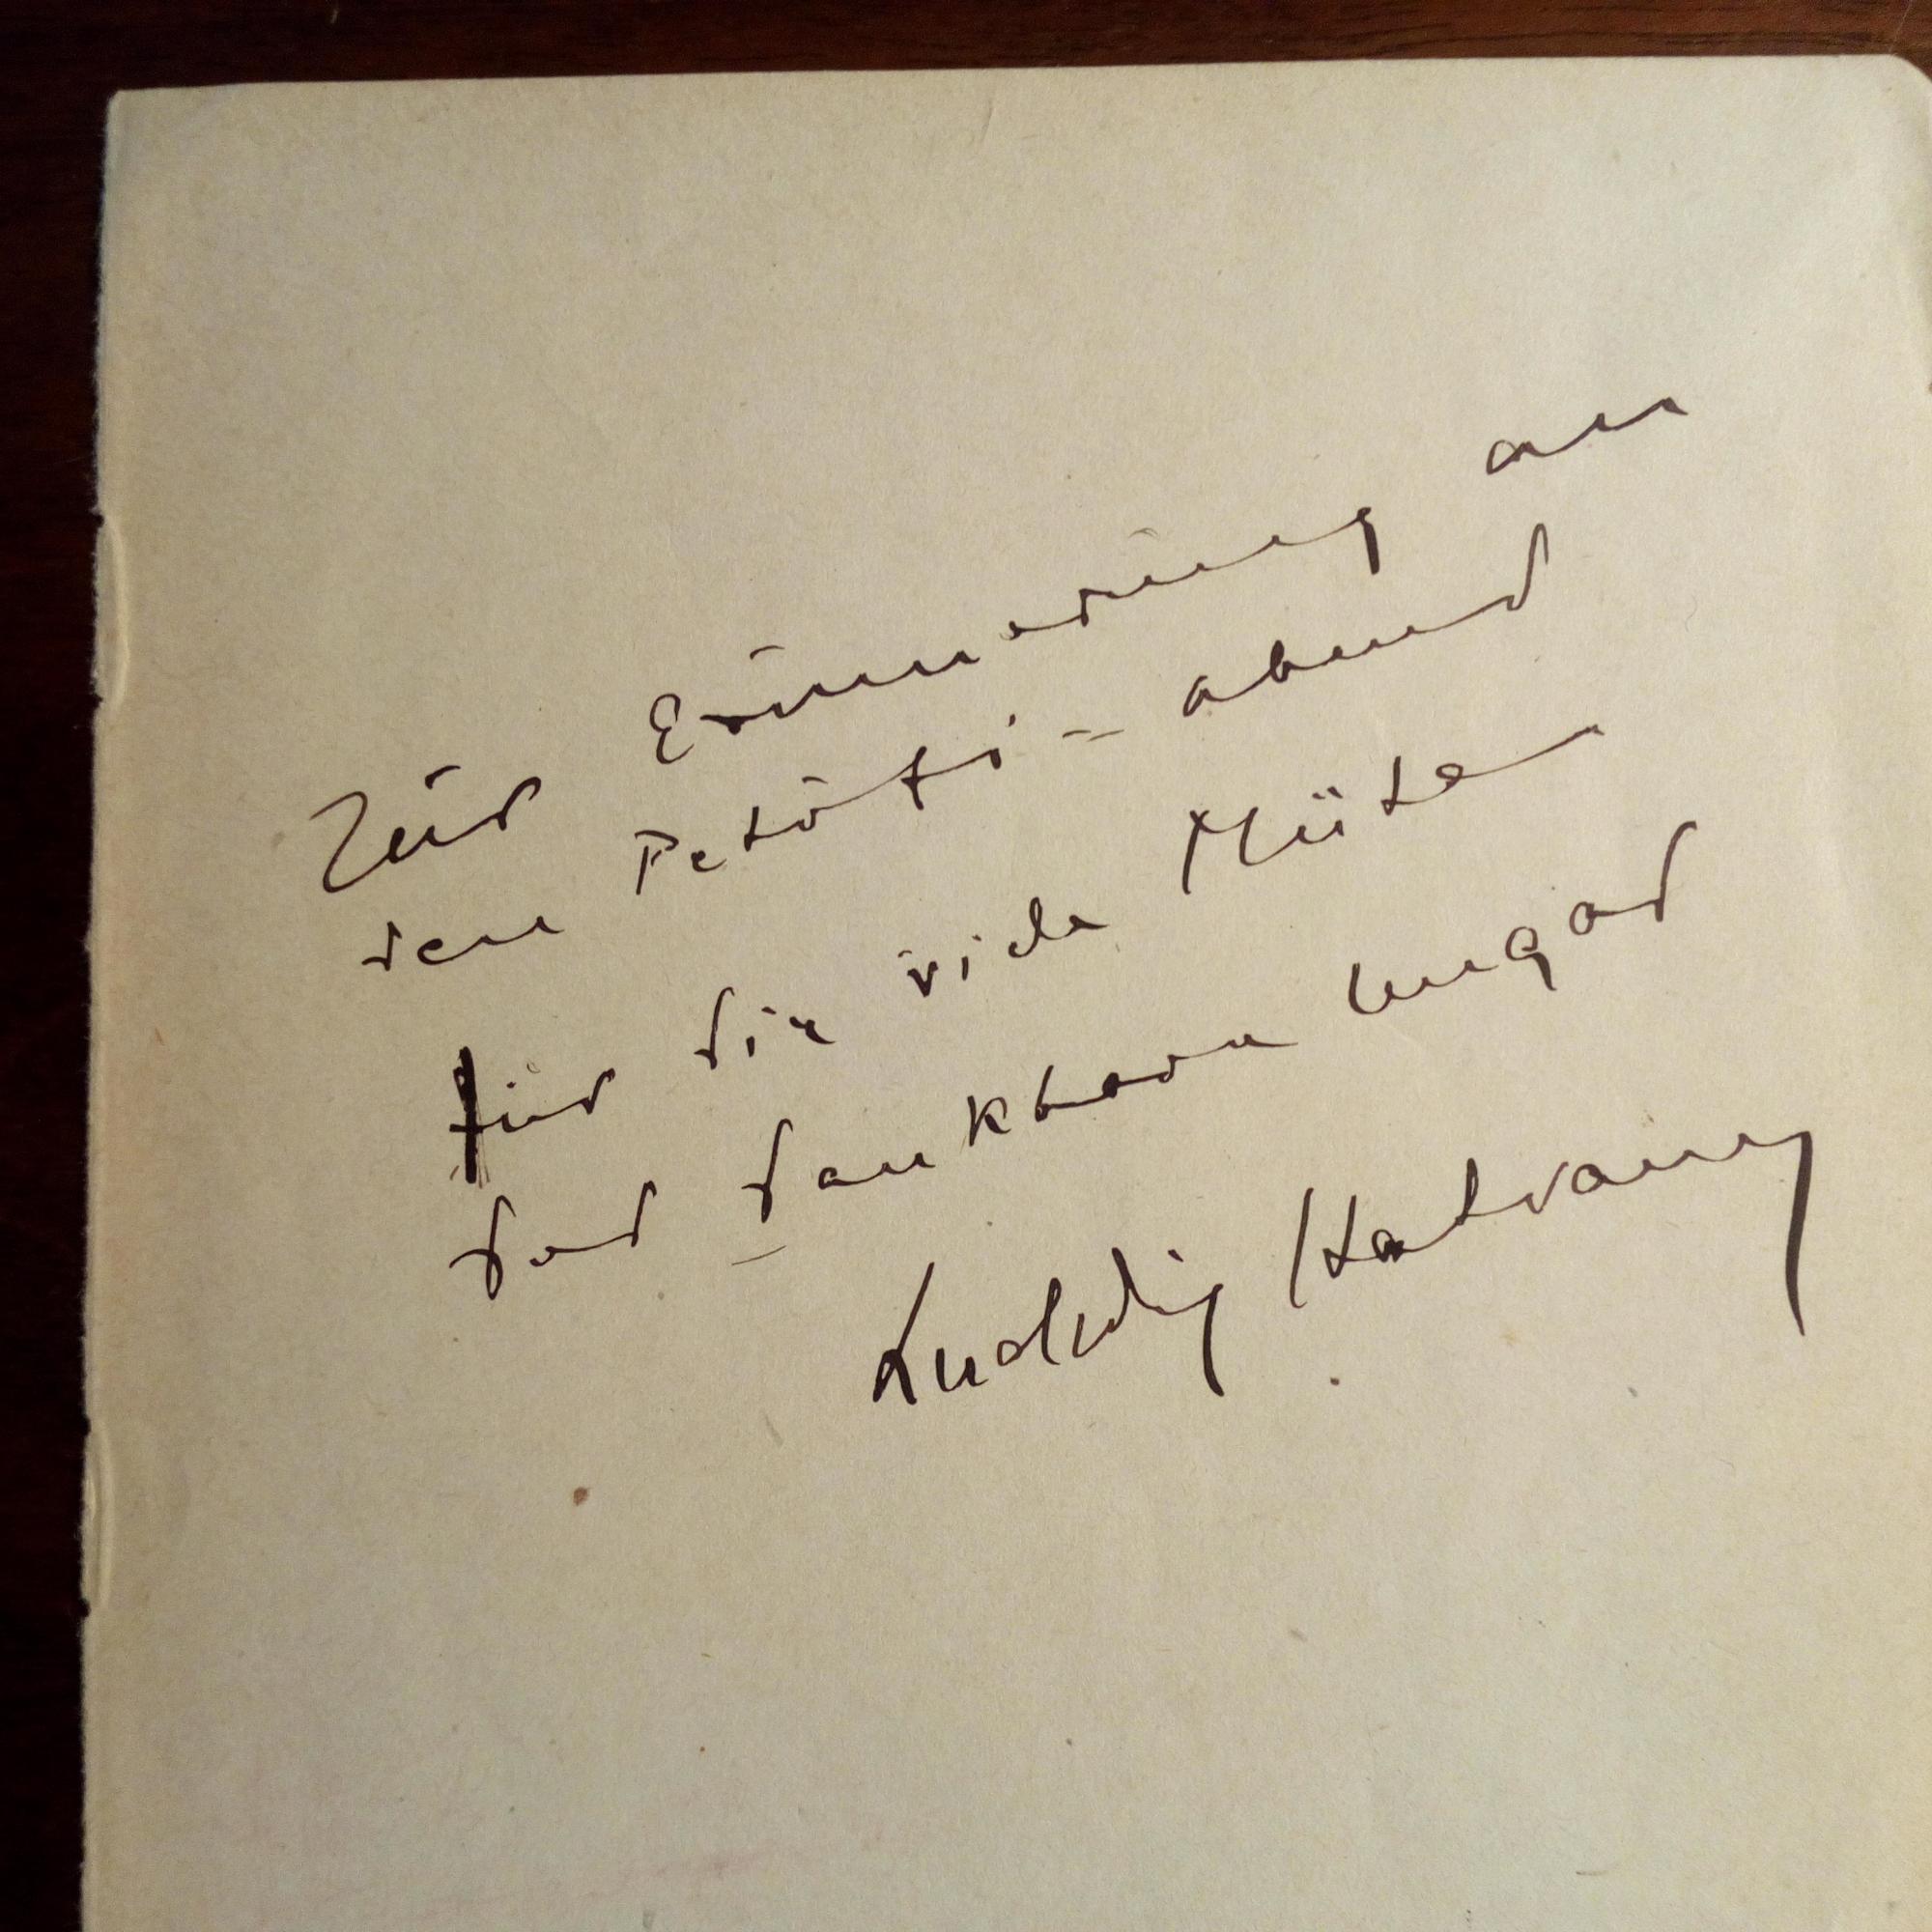 Zur Erinnerung an
den Petőfi-abend
für die viele Mühe
der dankbare Ungar
Ludwig Hatvany